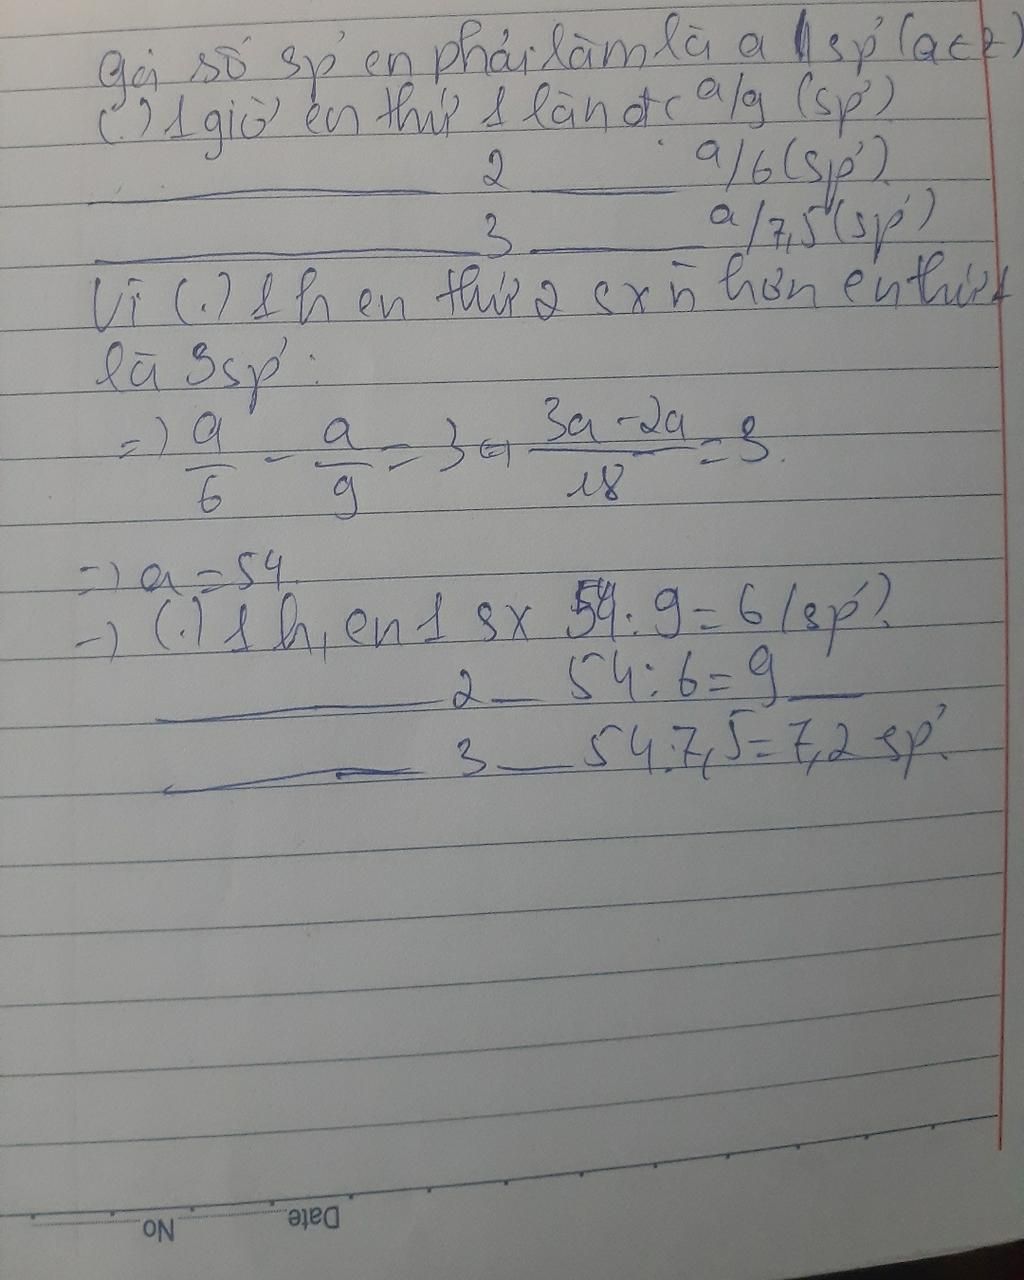 Gọi số sp' en phải làm là a sp' (a ∈ Z)
(.) 1 giờ en thứ 1 làn đc a/9 (sp')
2 a/6 (sp')
3 a/7,5 (sp')
Vì (.) 1 h en thứ 2 sx ñ hơn en thứ 1
là 3sp' :
=) a/6 - a/9 = 3 (=) (3a - 2a)/18 = 3.
=) a = 54.
-) (.) 1 h, en 1 sx 54 : 9 = 6 (sp').
2 54 : 6 = 9
3 54 : 7,5 = 7,2 sp'.
No Date